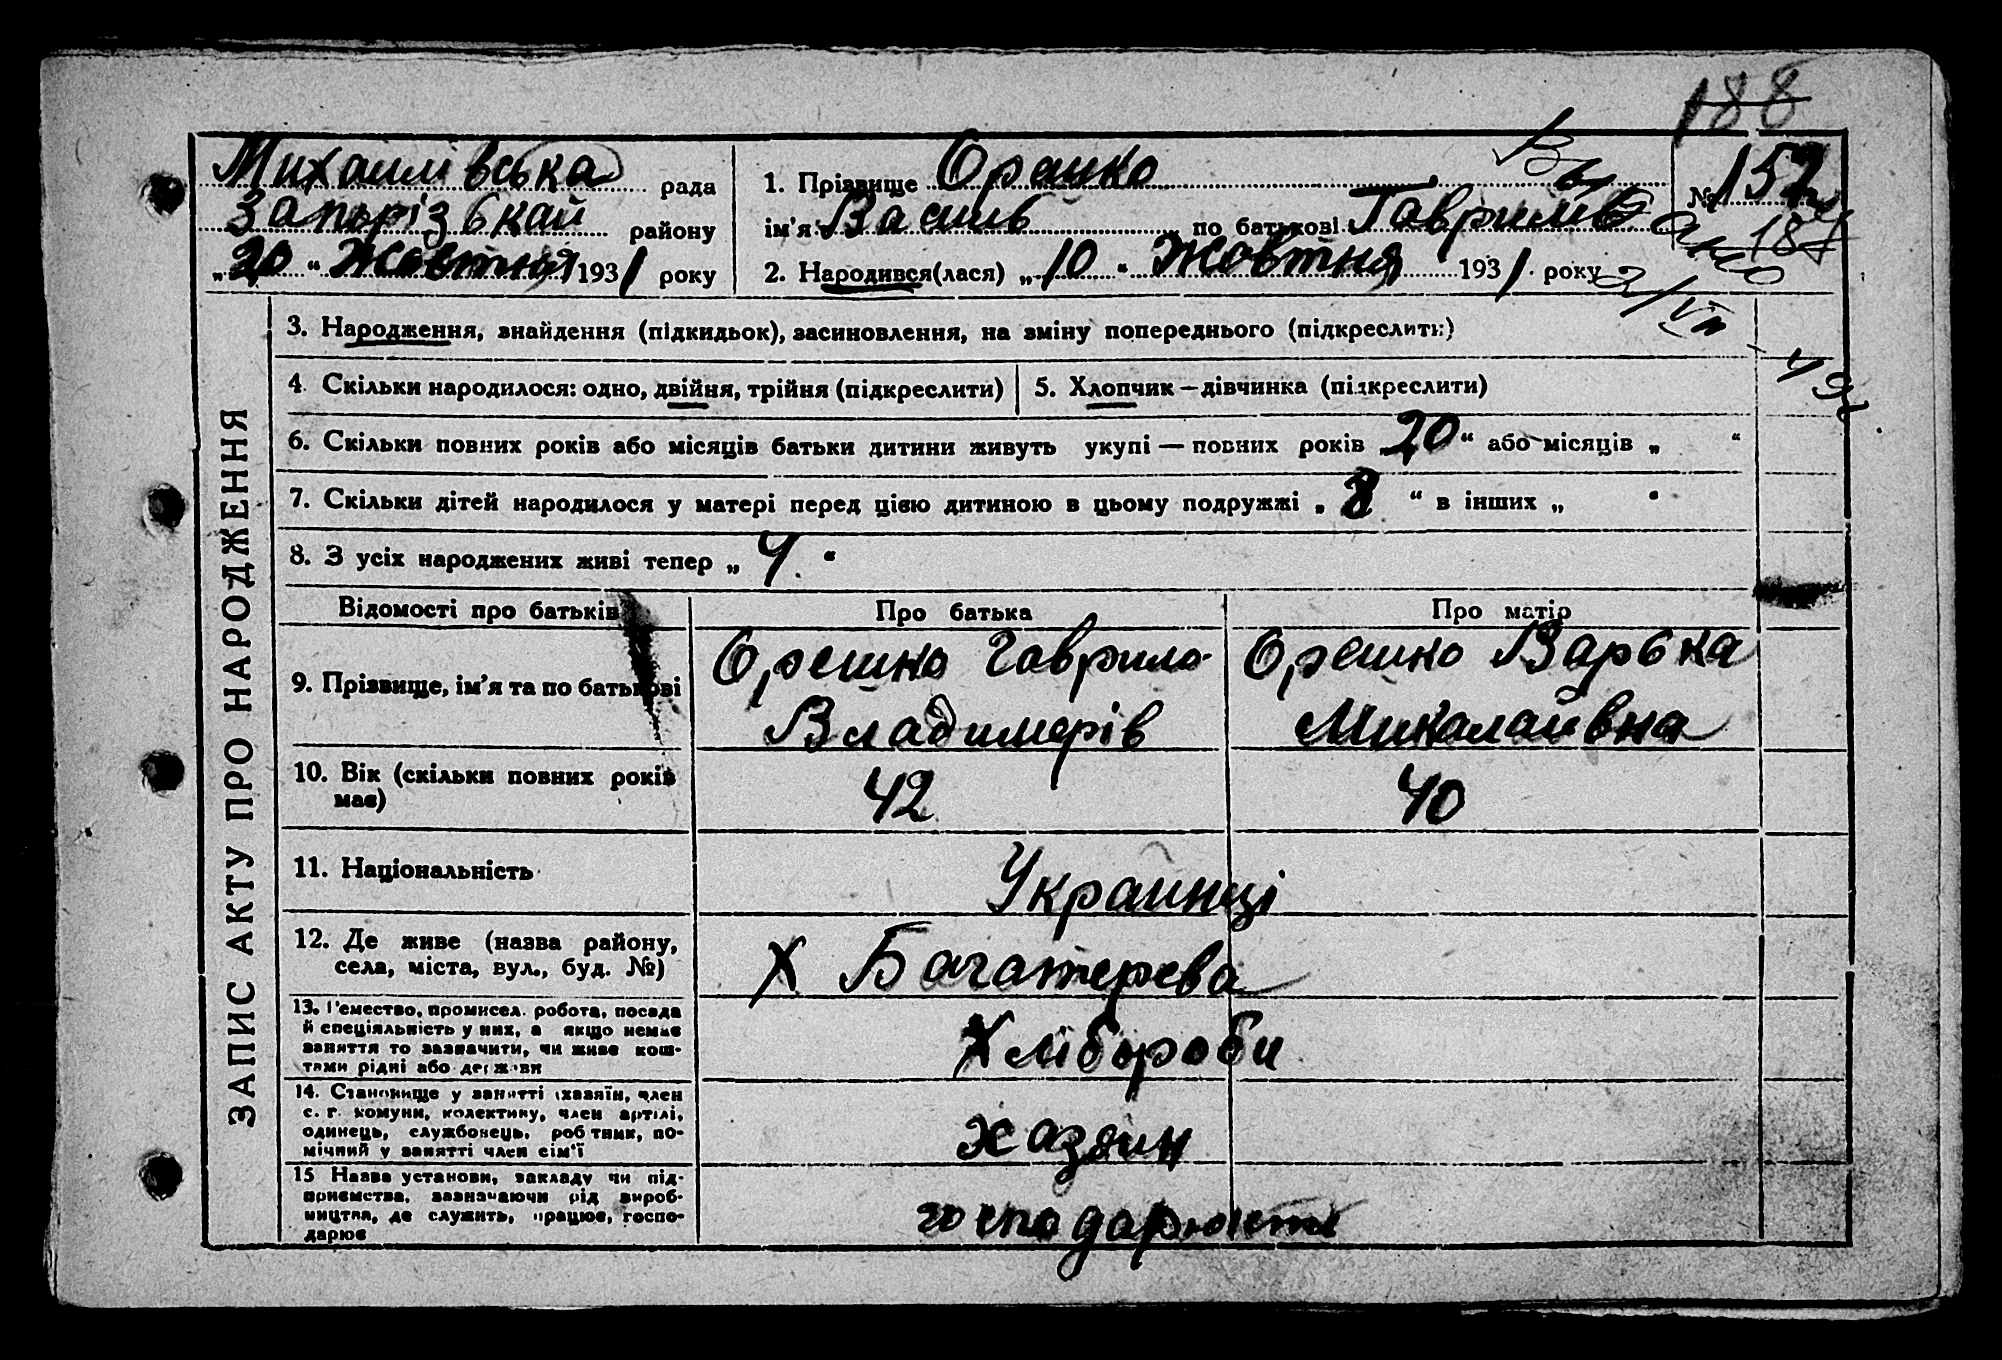 188
Михаилівська рада
Запорізькай району
„20“ Жовтня 1931 року
1. Прізвище Орешко
ім'я Василь по батькові Гаврилів
2. Народився(лася) „10“ Жовтня 1931 року
№ 152
187
Выдано
2/VII - 49г
ЗАПИС АКТУ ПРО НАРОДЖЕННЯ
3. Народження, знайдення (підкидьок), засиновлення, на зміну попереднього (підкреслити)
4. Скільки народилося: одно, двійня, трійня (підкреслити)
5. Хлопчик — дівчинка (підкреслити)
6. Скільки повних років або місяців батьки дитини живуть укупі — повних років „20“ або місяців „ “
7. Скільки дітей народилося у матері перед цією дитиною в цьому подружжі „8“ в інших „ “
8. З усіх народжених живі тепер „4“
Відомості про батьків
Про батька
Про матір
9. Прізвище, ім'я та по батькові
Орешко Гаврило
Владимерів
Орешко Варька
Микалаивна
10. Вік (скільки повних років
має)
42
40
11. Національність
Украинці
12. Де живе (назва району,
села, міста, вул., буд. №)
Х Багатерева
13. Ремество, промисел, робота, посада
й спеціяльність у них, а якщо немає
заняття то зазначити, чи живе кош-
тами рідні або держави
Хлібороби
14. Становище у занятті (хазяїн, член
с. г. комуни, колективу, член артілі,
одинець, службовець, робтник, по-
мічний у занятті член сім'ї
хазяин
15 Назва установи, закладу чи під-
приємства, зазначаючи рід вироб-
ництва, де служить, працює, госпо-
дарює
господарюють